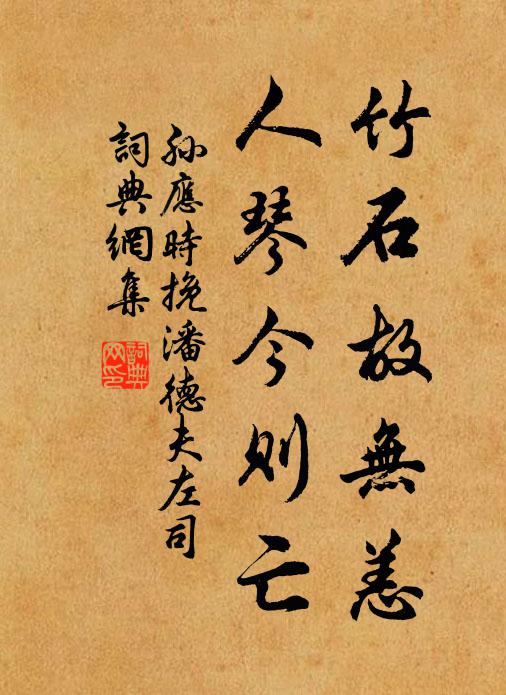 竹石故無恙
人琴今則亡
孫應時挽潘德夫左司
詞典網集
詞典網印